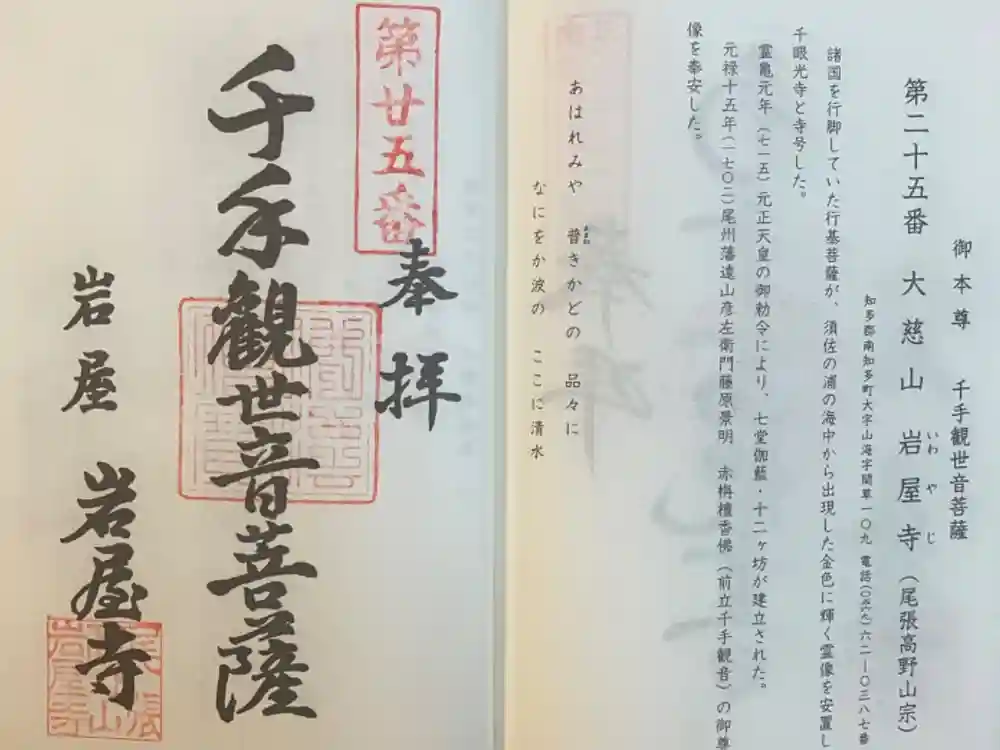 御本尊　千手観世音菩薩
第二十五番　大慈山　岩屋寺（尾張高野山宗）
いわやじ
知多郡南知多町大字山海字間草一〇九　電話（〇五六九）六二―〇三八七番
諸国を行脚していた行基菩薩が、須佐の浦の海中から出現した金色に輝く霊像を安置し
千眼光寺と寺号した。
霊亀元年（七一五）元正天皇の御勅令により、七堂伽藍・十二ヶ坊が建立された。
元禄十五年（一七〇二）尾州藩遠山彦左衛門藤原景明　赤栴檀香佛（前立千手観音）の御尊
像を奉安した。
あはれみや　普きかどの　品々に
あまね
なにをか波の　ここに清水
第廿五番
奉拝
千手観世音菩薩
岩屋　岩屋寺
尾張
山
岩屋寺